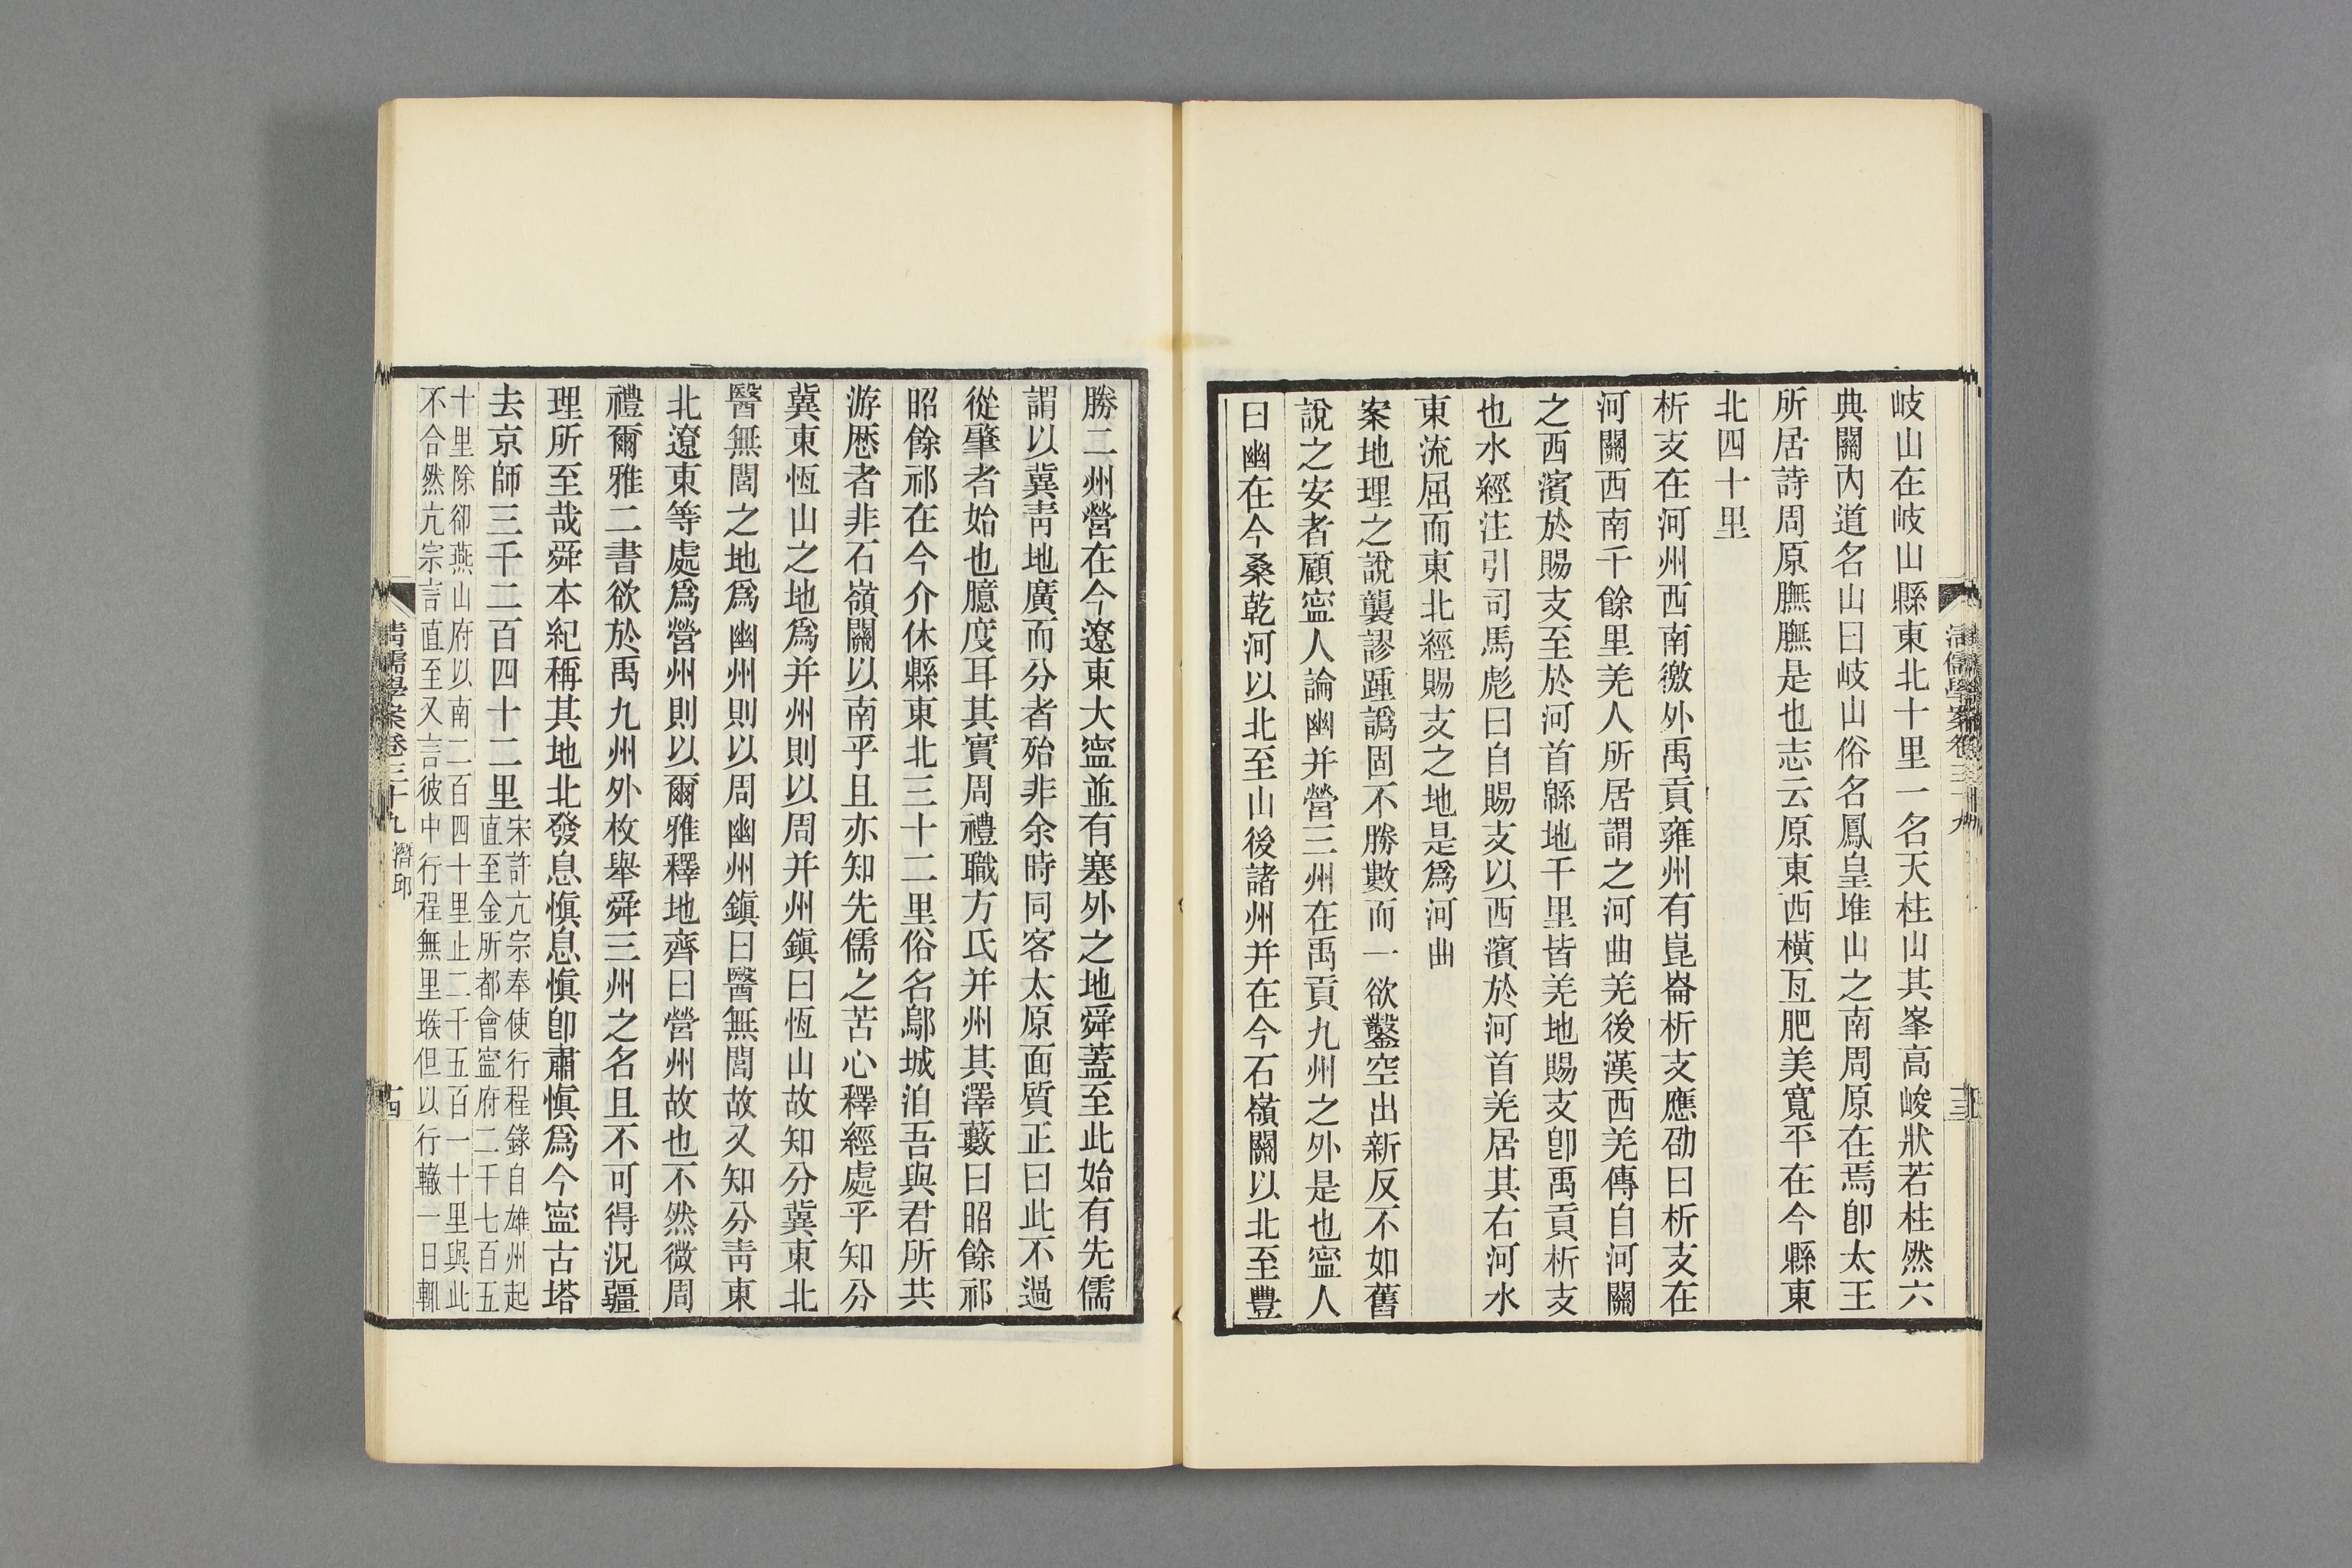 岐山在岐山縣東北十里一名天柱山其峯高峻狀若柱然六
典關內道名山曰岐山俗名鳳皇堆山之南周原在焉卽太王
所居詩周原膴膴是也志云原東西橫亙肥美寬平在今縣東
北四十里
析支在河州西南徼外禹貢雍州有崑崙析支應劭曰析支在
河關西南千餘里羌人所居謂之河曲羌後漢西羌傳自河關
之西濱於賜支至於河首緜地千里皆羌地賜支卽禹貢析支
也水經注引司馬彪曰自賜支以西濱於河首羌居其右河水
東流屈而東北經賜支之地是爲河曲
案地理之說襲謬踵譌固不勝數而一欲鑿空出新反不如舊
說之安者顧寍人論幽并營三州在禹貢九州之外是也寍人
曰幽在今桑乾河以北至山後諸州并在今石嶺關以北至豐
勝二州營在今遼東大寍並有塞外之地舜蓋至此始有先儒
謂以冀靑地廣而分者殆非余時同客太原面質正曰此不過
從肇者始也臆度耳其實周禮職方氏并州其澤藪曰昭餘祁
昭餘祁在今介休縣東北三十二里俗名鄔城泊吾與君所共
游歷者非石嶺關以南乎且亦知先儒之苦心釋經處乎知分
冀東恆山之地爲并州則以周并州鎭曰恆山故知分冀東北
醫無閭之地爲幽州則以周幽州鎭曰醫無閭故又知分靑東
北遼東等處爲營州則以爾雅釋地齊曰營州故也不然微周
禮爾雅二書欲於禹九州外枚舉舜三州之名且不可得況疆
理所至哉舜本紀稱其地北發息愼息愼卽肅愼爲今寍古塔
去京師三千二百四十二里
宋許亢宗奉使行程錄自雄州起
直至金所都會寍府二千七百五
十里除卻燕山府以南二百四十里止二千五百一十里與此
不合然亢宗言直至又言彼中行程無里堠但以行轍一日輒
清儒學案卷三十九 潛邱
十四